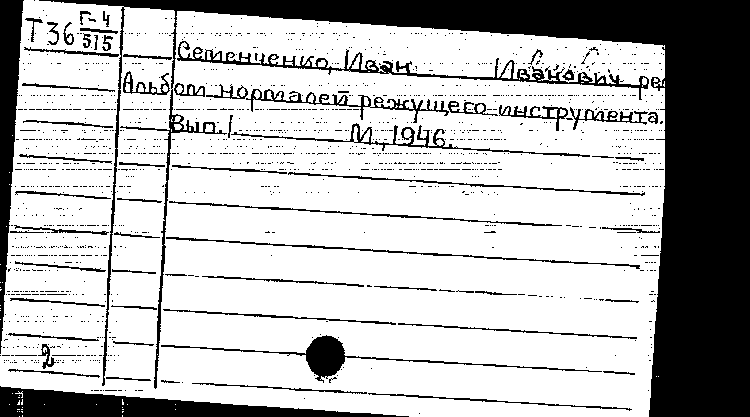 Т36 Г-4
515
Семенченко, Иван Иванович ре
Альбом нормалей режущего инструмента.
Вып. 1 М., 1946.
2